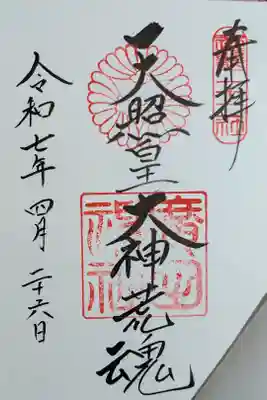 奉拝
天照皇大神荒魂
廣田
神社
令和七年 四月 二十六日